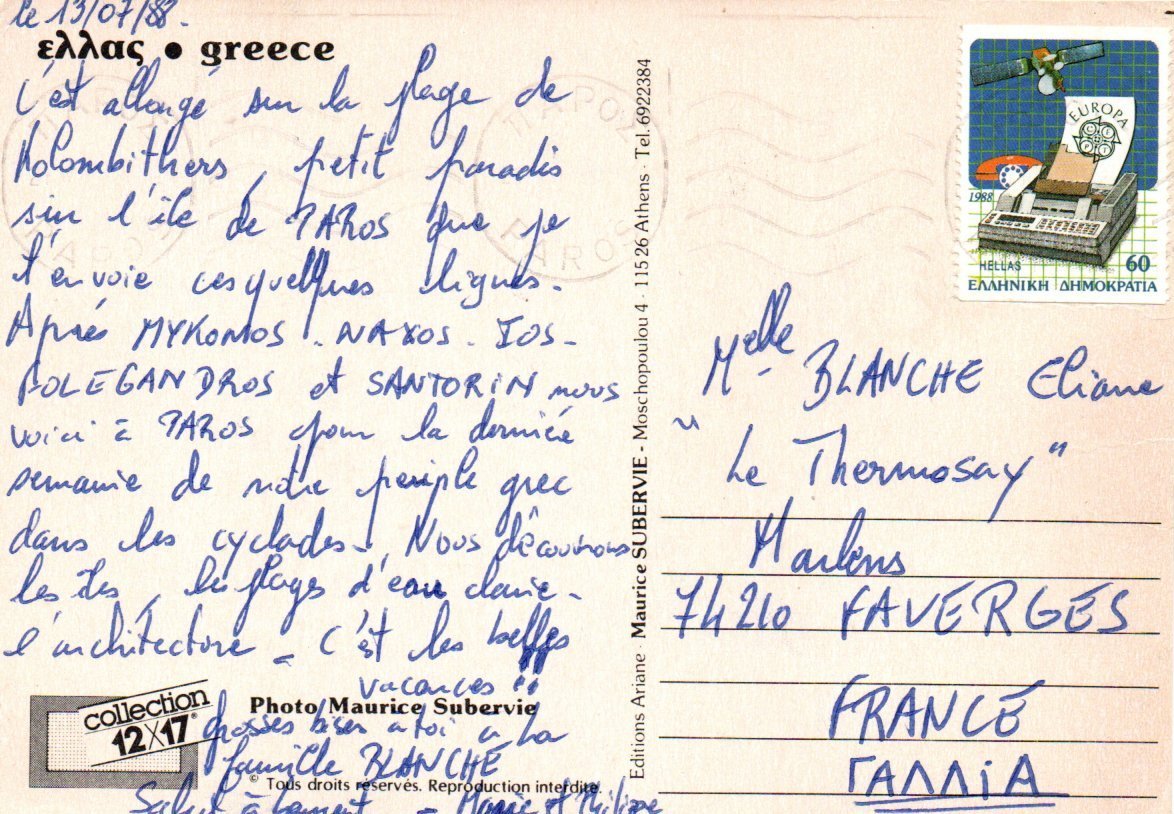 le 13/07/88.
ελλας • greece
C'est allongé sur la plage de
Kolombithers, petit paradis
sur l'île de PAROS que je
t'envoie ces quelques lignes.
Après MYKONOS. NAXOS. IOS.
POLEGANDROS et SANTORIN nous
voici à PAROS pour la dernière
semaine de notre périple grec
dans les cyclades. Nous découvrons
les îles, les plages d'eau claire.
l'architecture _ C'est les belles
vacances !!
Grosses bises à toi à la
famille BLANCHE
Salut à _ Marie et Philippe
collection
12X17
Photo Maurice Subervie
© Tous droits réservés. Reproduction interdite.
Editions Ariane · Maurice SUBERVIE - Moschopoulou 4 · 115 26 Athens · Tel. 6922384
ΠΑΡΟΣ
PAROS
EUROPA
CEPT
1988
HELLAS
60
ΕΛΛΗΝΙΚΗ ΔΗΜΟΚΡΑΤΙΑ
Melle BLANCHE Eliane
"Le Thermosay"
Marlens
74210 FAVERGES
FRANCE
ΓΑΛΛiΑ